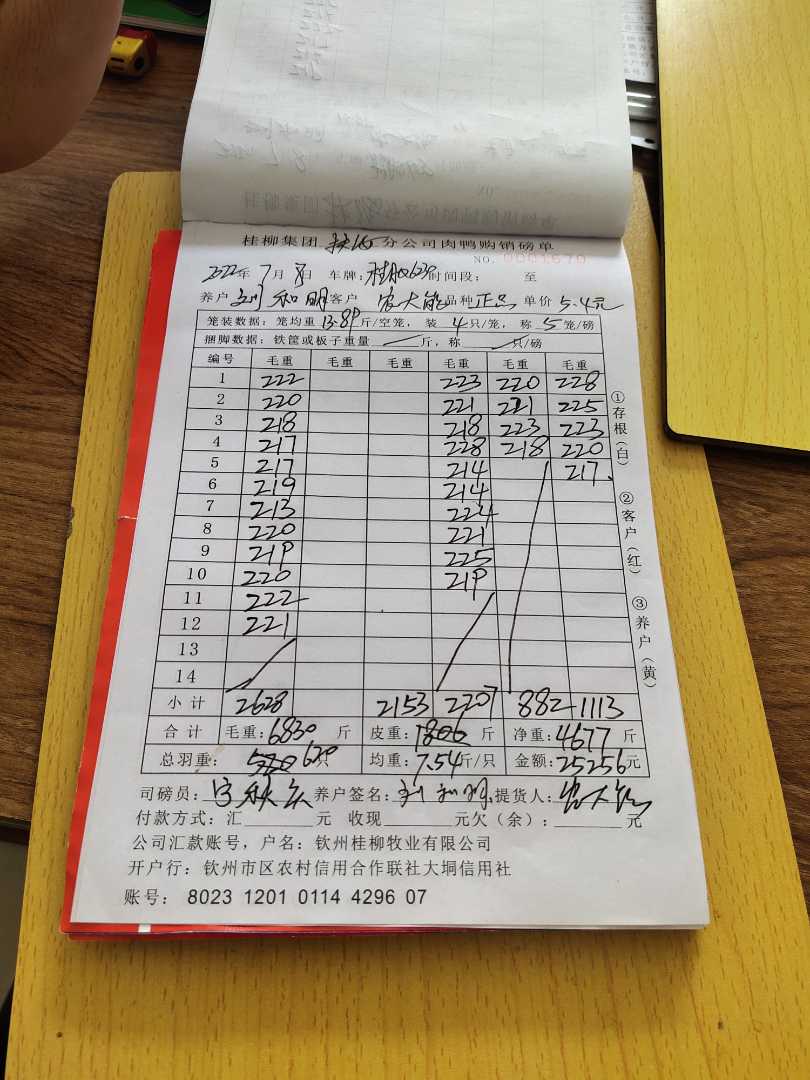 桂柳集团 扶伍 分公司肉鸭购销磅单
NO. 0001670
2022年 7月 8日 车牌: 桂 630 时间段: 至
养户 刘和明 客户 农大能 品种 正品 单价 5.4元
笼装数据: 笼均重 13.89 斤/空笼, 装 4 只/笼, 称 5 笼/磅
捆脚数据: 铁筐或板子重量 斤, 称 只/磅
编号 毛重 毛重 毛重 毛重 毛重 毛重
1 222 223 220 228
2 220 221 221 225
3 218 218 223 223
4 217 228 218 220
5 217 214 217
6 219 214
7 213 224
8 220 221
9 219 225
10 220 219
11 222
12 221
13
14
小计 2628 2153 2207 882 1113
合计 毛重: 6830 斤 皮重: 斤 净重: 4677 斤
总羽重: 620 只 均重: 7.54 斤/只 金额: 25256元
司磅员: 养户签名: 刘和明 提货人: 农大能
付款方式: 汇 元 收现 元欠(余): 元
公司汇款账号, 户名: 钦州桂柳牧业有限公司
开户行: 钦州市区农村信用合作联社大垌信用社
账号: 8023 1201 0114 4296 07
①存根(白)
②客户(红)
③养户(黄)